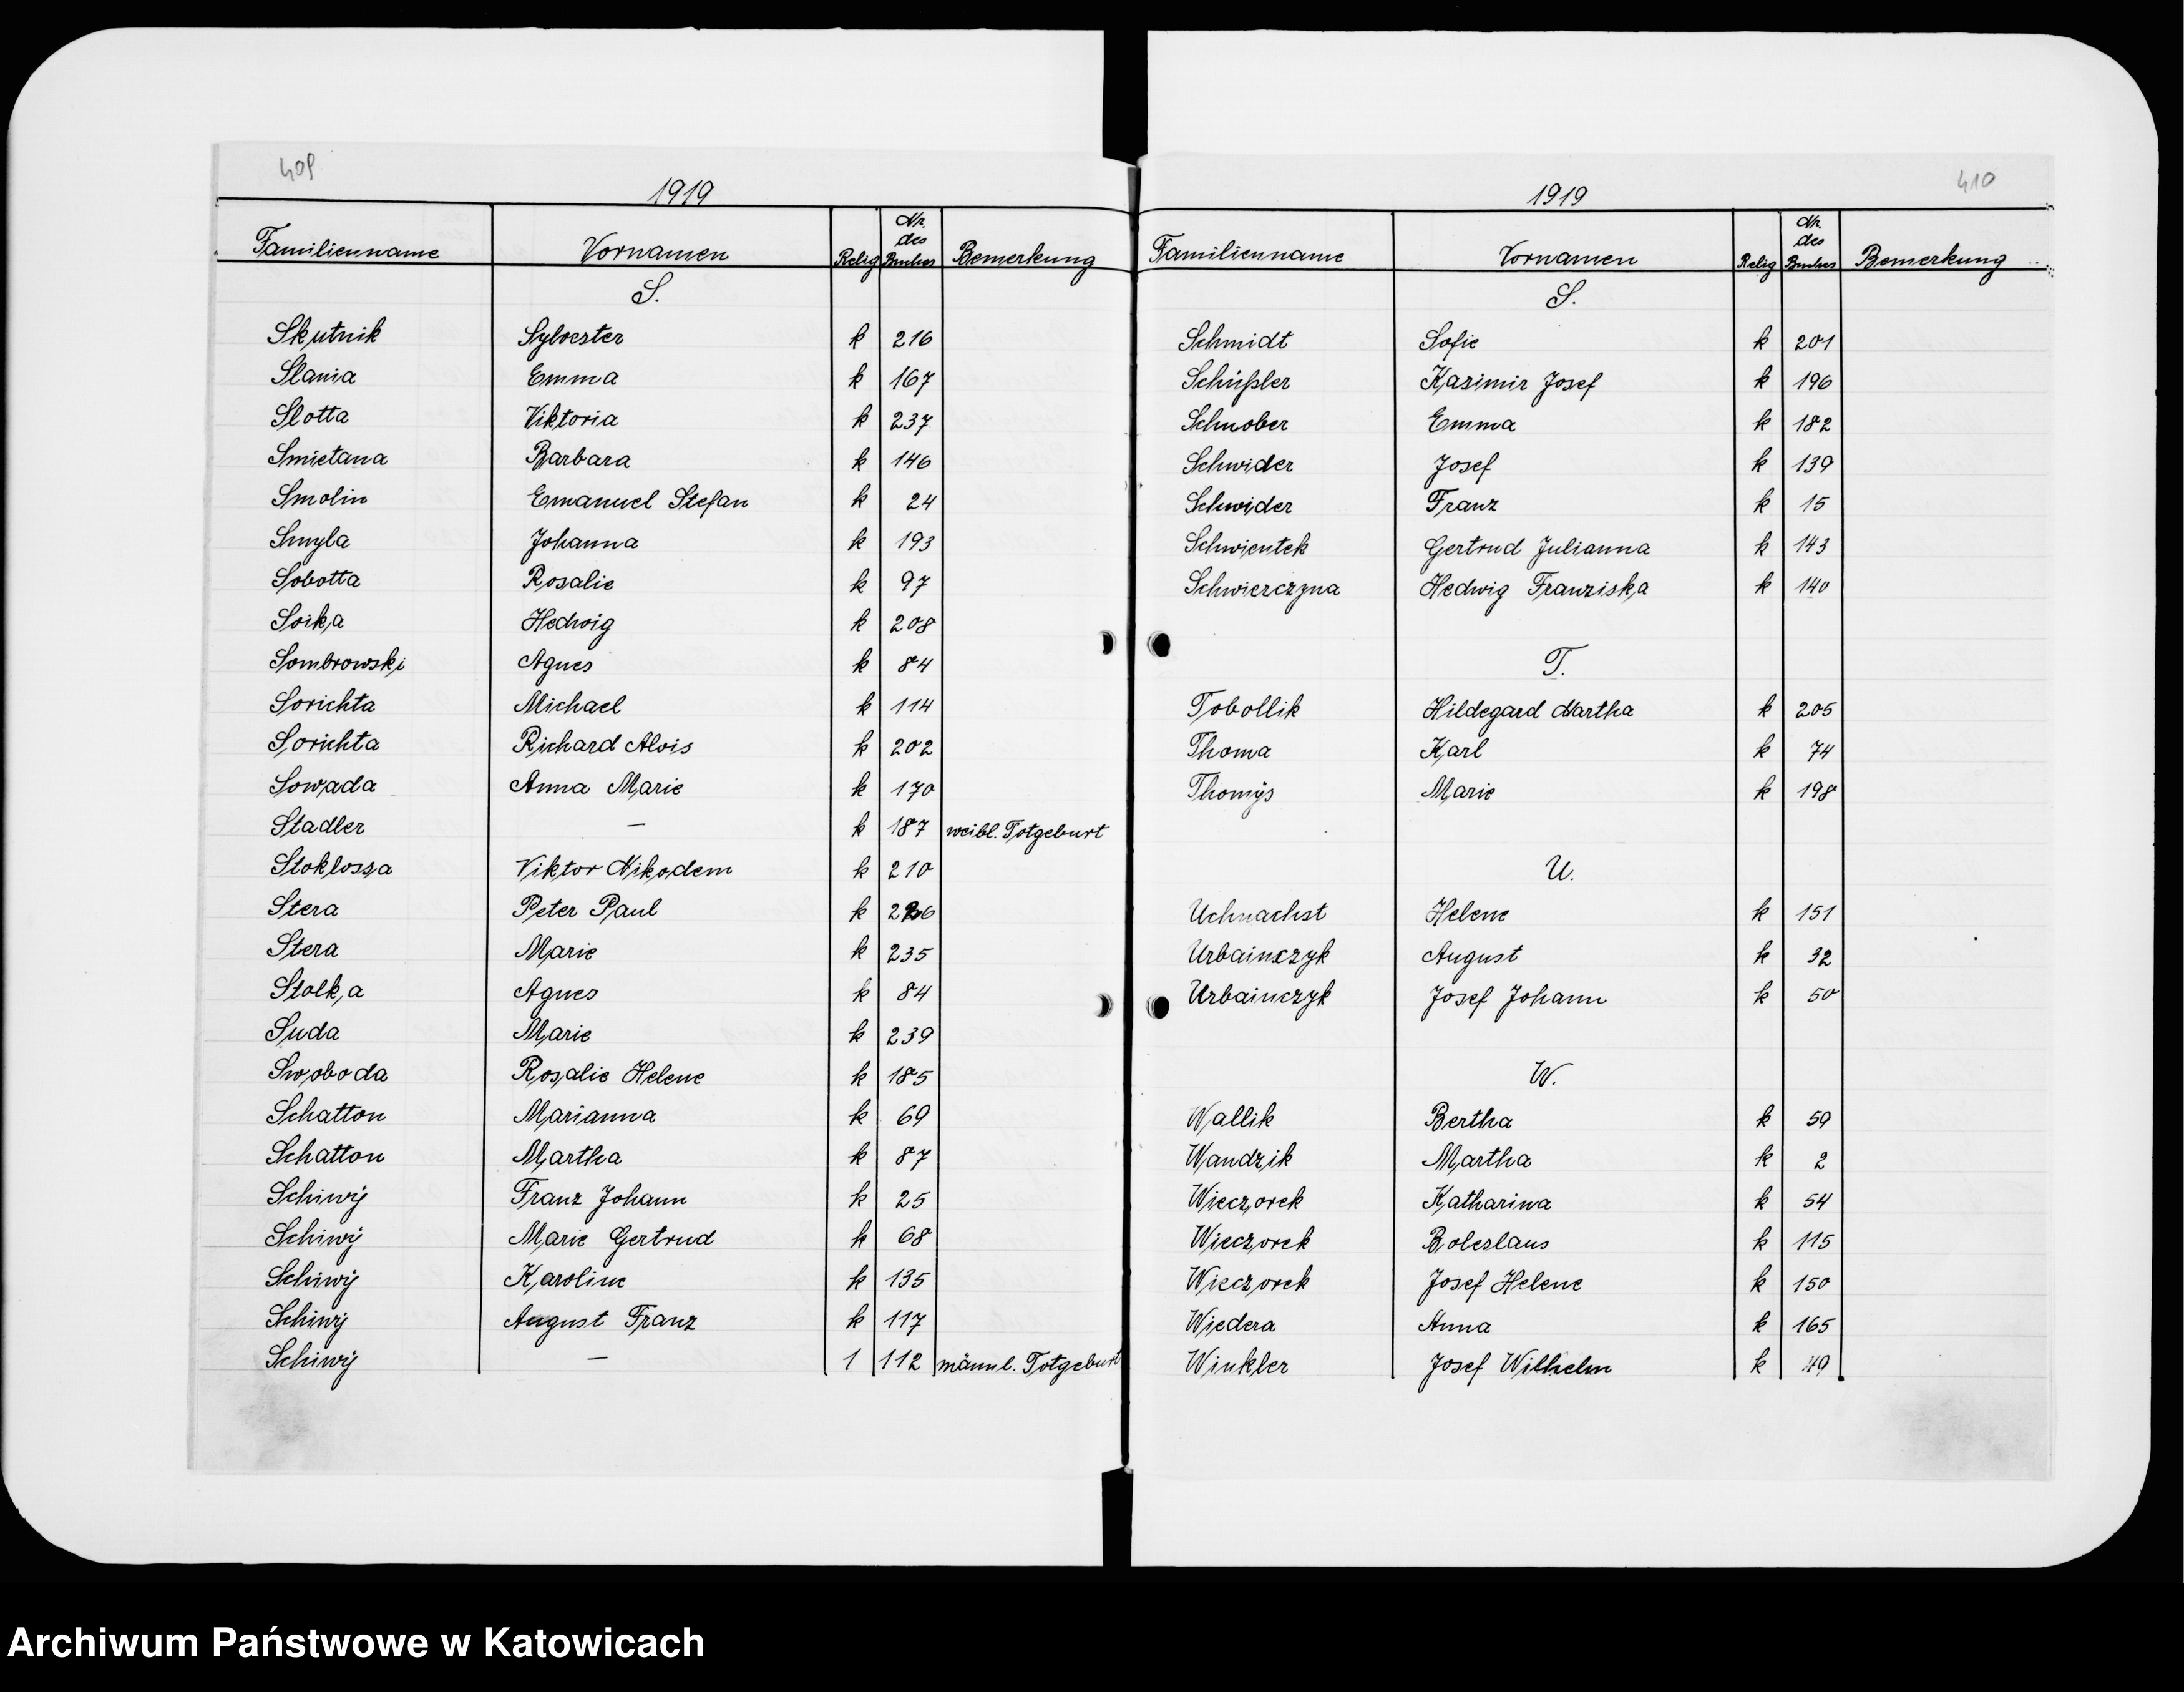 409
1919
Familienname Vornamen Relig Nr. des Buches Bemerkung
S.
Skutnik Sylvester k 216
Slania Emma k 167
Slotta Viktoria k 237
Smietana Barbara k 146
Smolin Emanuel Stefan k 24
Smyla Johanna k 193
Sobotta Rosalie k 97
Soika Hedwig k 208
Sombrowski Agnes k 84
Sorichta Michael k 114
Sorichta Richard Alois k 202
Sowada Anna Marie k 170
Stadler — k 187 weibl. Totgeburt
Stoklossa Viktor Nikodem k 210
Stera Peter Paul k
Stera Marie k 235
Stolka Agnes k 84
Suda Marie k 239
Swoboda Rosalie Helene k 185
Schatton Marianna k 69
Schatton Martha k 87
Schiwÿ Franz Johann k 25
Schiwÿ Marie Gertrud k 68
Schiwÿ Karoline k 135
Schiwÿ August Franz k 117
Schiwÿ — 1 112 männl. Totgeburt
410
1919
Familienname Vornamen Relig Nr. des Buches Bemerkung
S.
Schmidt Sofie k 201
Schüßler Kasimir Josef k 196
Schnober Emma k 182
Schwider Josef k 139
Schwider Franz k 15
Schwientek Gertrud Julianna k 143
Schwierczyna Hedwig Franziska k 140
T.
Tobollik Hildegard Martha k 205
Thoma Karl k 74
Thomÿs Marie k 198
U.
Uchnachst Helene k 151
Urbainczyk August k 32
Urbainczyk Josef Johann k 50
W.
Wallik Bertha k 59
Wandzik Martha k 2
Wieczorek Katharina k 54
Wieczorek Boleslaus k 115
Wieczorek Josef Helene k 150
Wiedera Anna k 165
Winkler Josef Wilhelm k 49
Archiwum Państwowe w Katowicach